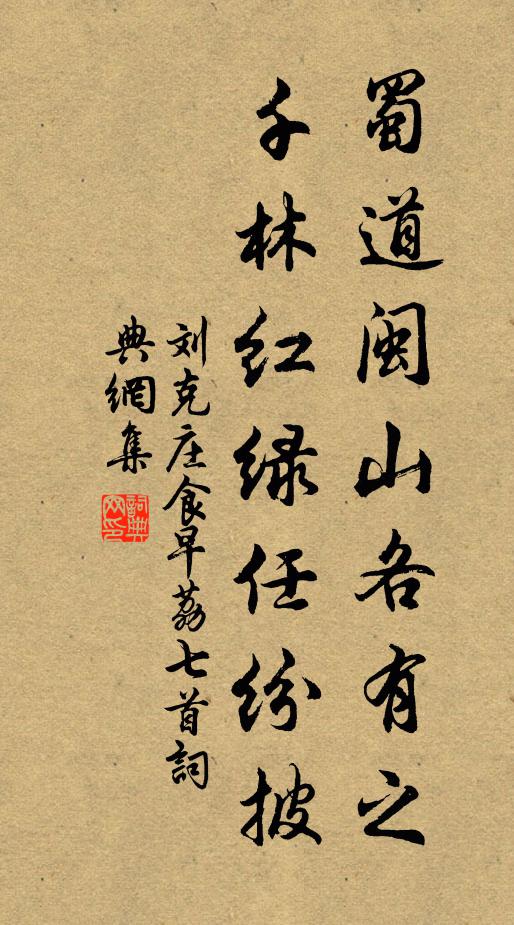 蜀道闽山各有之
千林红绿任纷披
刘克庄食早荔七首詞
典網集
詞典
网印